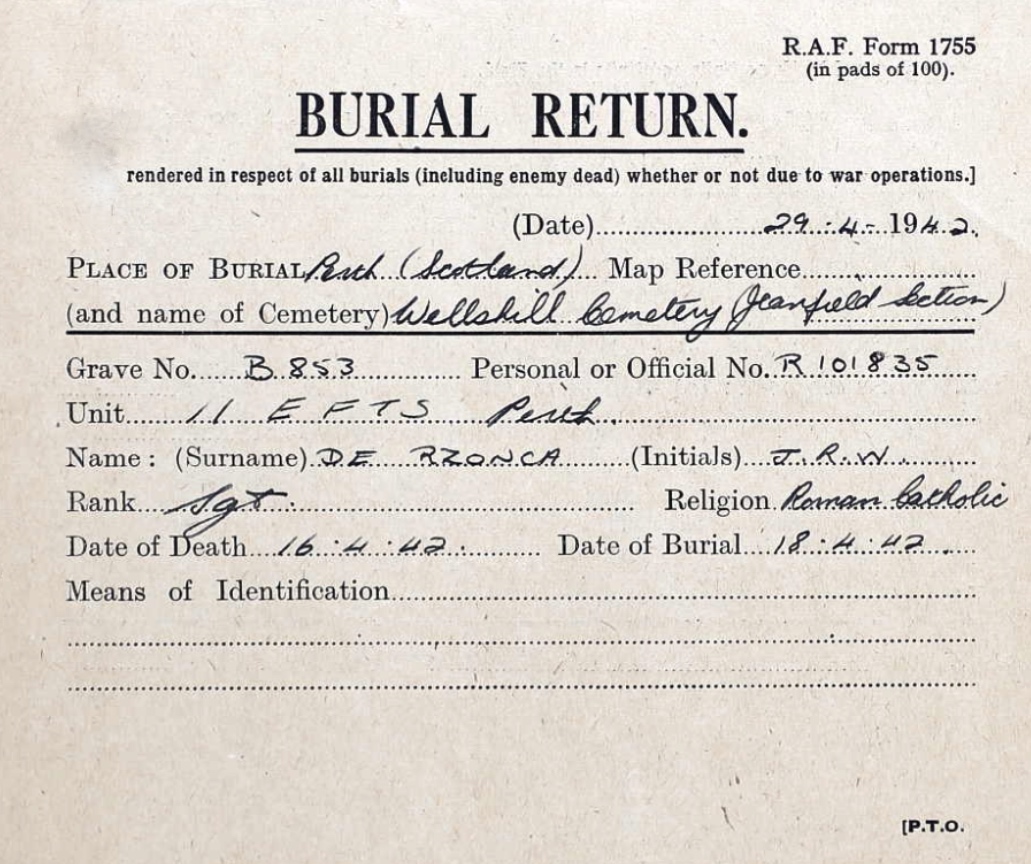 R.A.F. Form 1755
(in pads of 100).
BURIAL RETURN.
rendered in respect of all burials (including enemy dead) whether or not due to war operations.]
(Date) 29.4.1942.
PLACE OF BURIAL Perth (Scotland) Map Reference
(and name of Cemetery) Wellshill Cemetery (Jeanfield Section)
Grave No. B 853 Personal or Official No. R 101835
Unit 11 E F T S Perth.
Name: (Surname) DE RZONCA (Initials) J.R.W.
Rank Sgt. Religion Roman Catholic
Date of Death 16:4:42. Date of Burial 18:4:42
Means of Identification
[P.T.O.